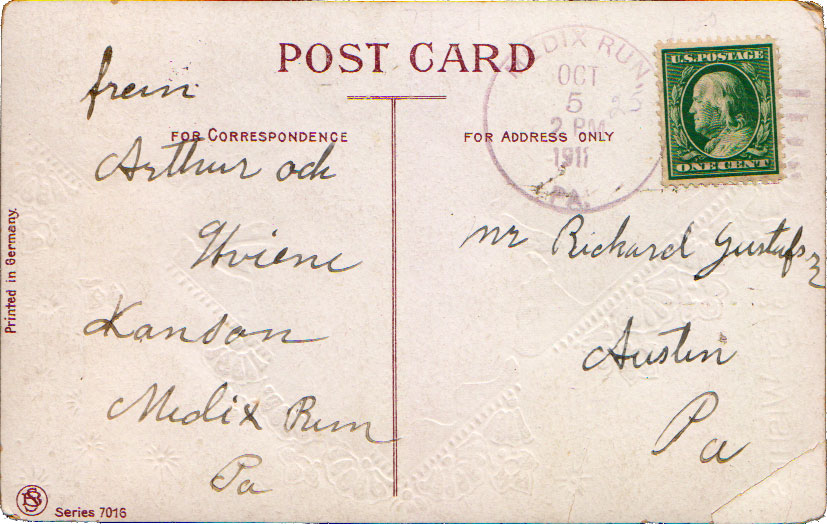 POST CARD
MEDIX RUN
OCT
5
2 PM
1911
PA.
U.S. POSTAGE
ONE CENT
FOR CORRESPONDENCE
FOR ADDRESS ONLY
from
Arthur och
Kanson
Medix Run
Pa
mr Rickard Gustafs
Austin
Pa
Printed in Germany.
Series 7016